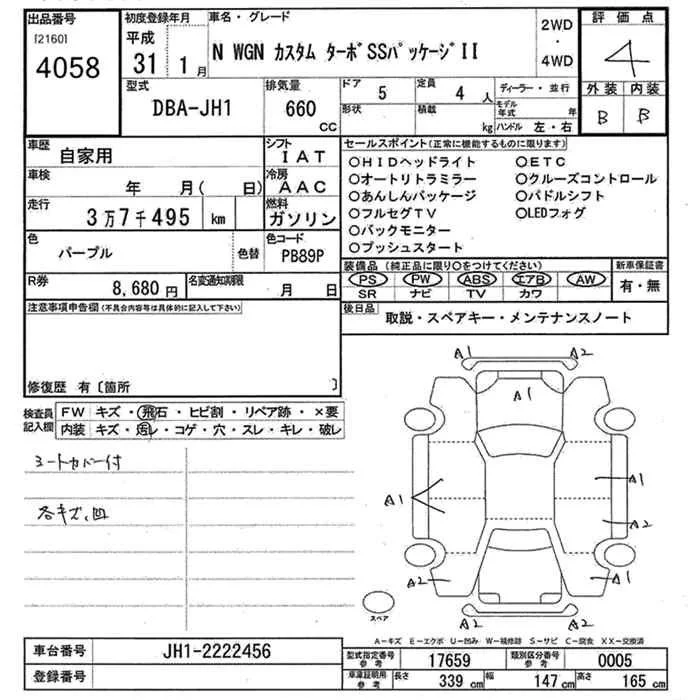 出品番号 初度登録年月 車名・グレード 2WD ・ 4WD 評価点
[2160] 4058
平成 31 1月
N WGN カスタム ターボSSパッケージII
4
外装 内装
B B
型式 DBA-JH1
排気量 660 CC
ドア 5 定員 4 人 ディーラー・並行
形状 積載 kg モデル年式 年
ハンドル 左・右
車歴 自家用
シフト IAT
車検 年 月( 日)
冷房 AAC
走行 3万7千495 km
燃料 ガソリン
色 パープル 色替
色コード PB89P
R券 8,680円 名変通知期限 月 日
セールスポイント(正常に機能するものに限ります)
○HIDヘッドライト ○ETC
○オートリトラミラー ○クルーズコントロール
○あんしんパッケージ ○パドルシフト
○フルセグTV ○LEDフォグ
○バックモニター
○プッシュスタート
装備品(純正品に限り○をつけてください) 新車保証書
PS PW ABS エアB AW 有・無
SR ナビ TV カワ
後日品 取説・スペアキー・メンテナンスノート
注意事項申告欄(不具合内容等は具体的に記入して下さい)
修復歴 有〔箇所 〕
検査員記入欄 FW キズ・飛石・ヒビ割・リペア跡・×要
内装 キズ・汚レ・コゲ・穴・スレ・キレ・破レ
シートカバー付
各キズ、凹
A1 A2
A1
A1 A1
A2
A2 A1
A2 A2
スペア
A-キズ E-エクボ U-凹み W-補修跡 S-サビ C-腐食 XX-交換済
車台番号 JH1-2222456
登録番号
型式指定番号 参考 17659 類別区分番号 参考 0005
車庫証明用 参考 長さ 339 cm 幅 147 cm 高さ 165 cm